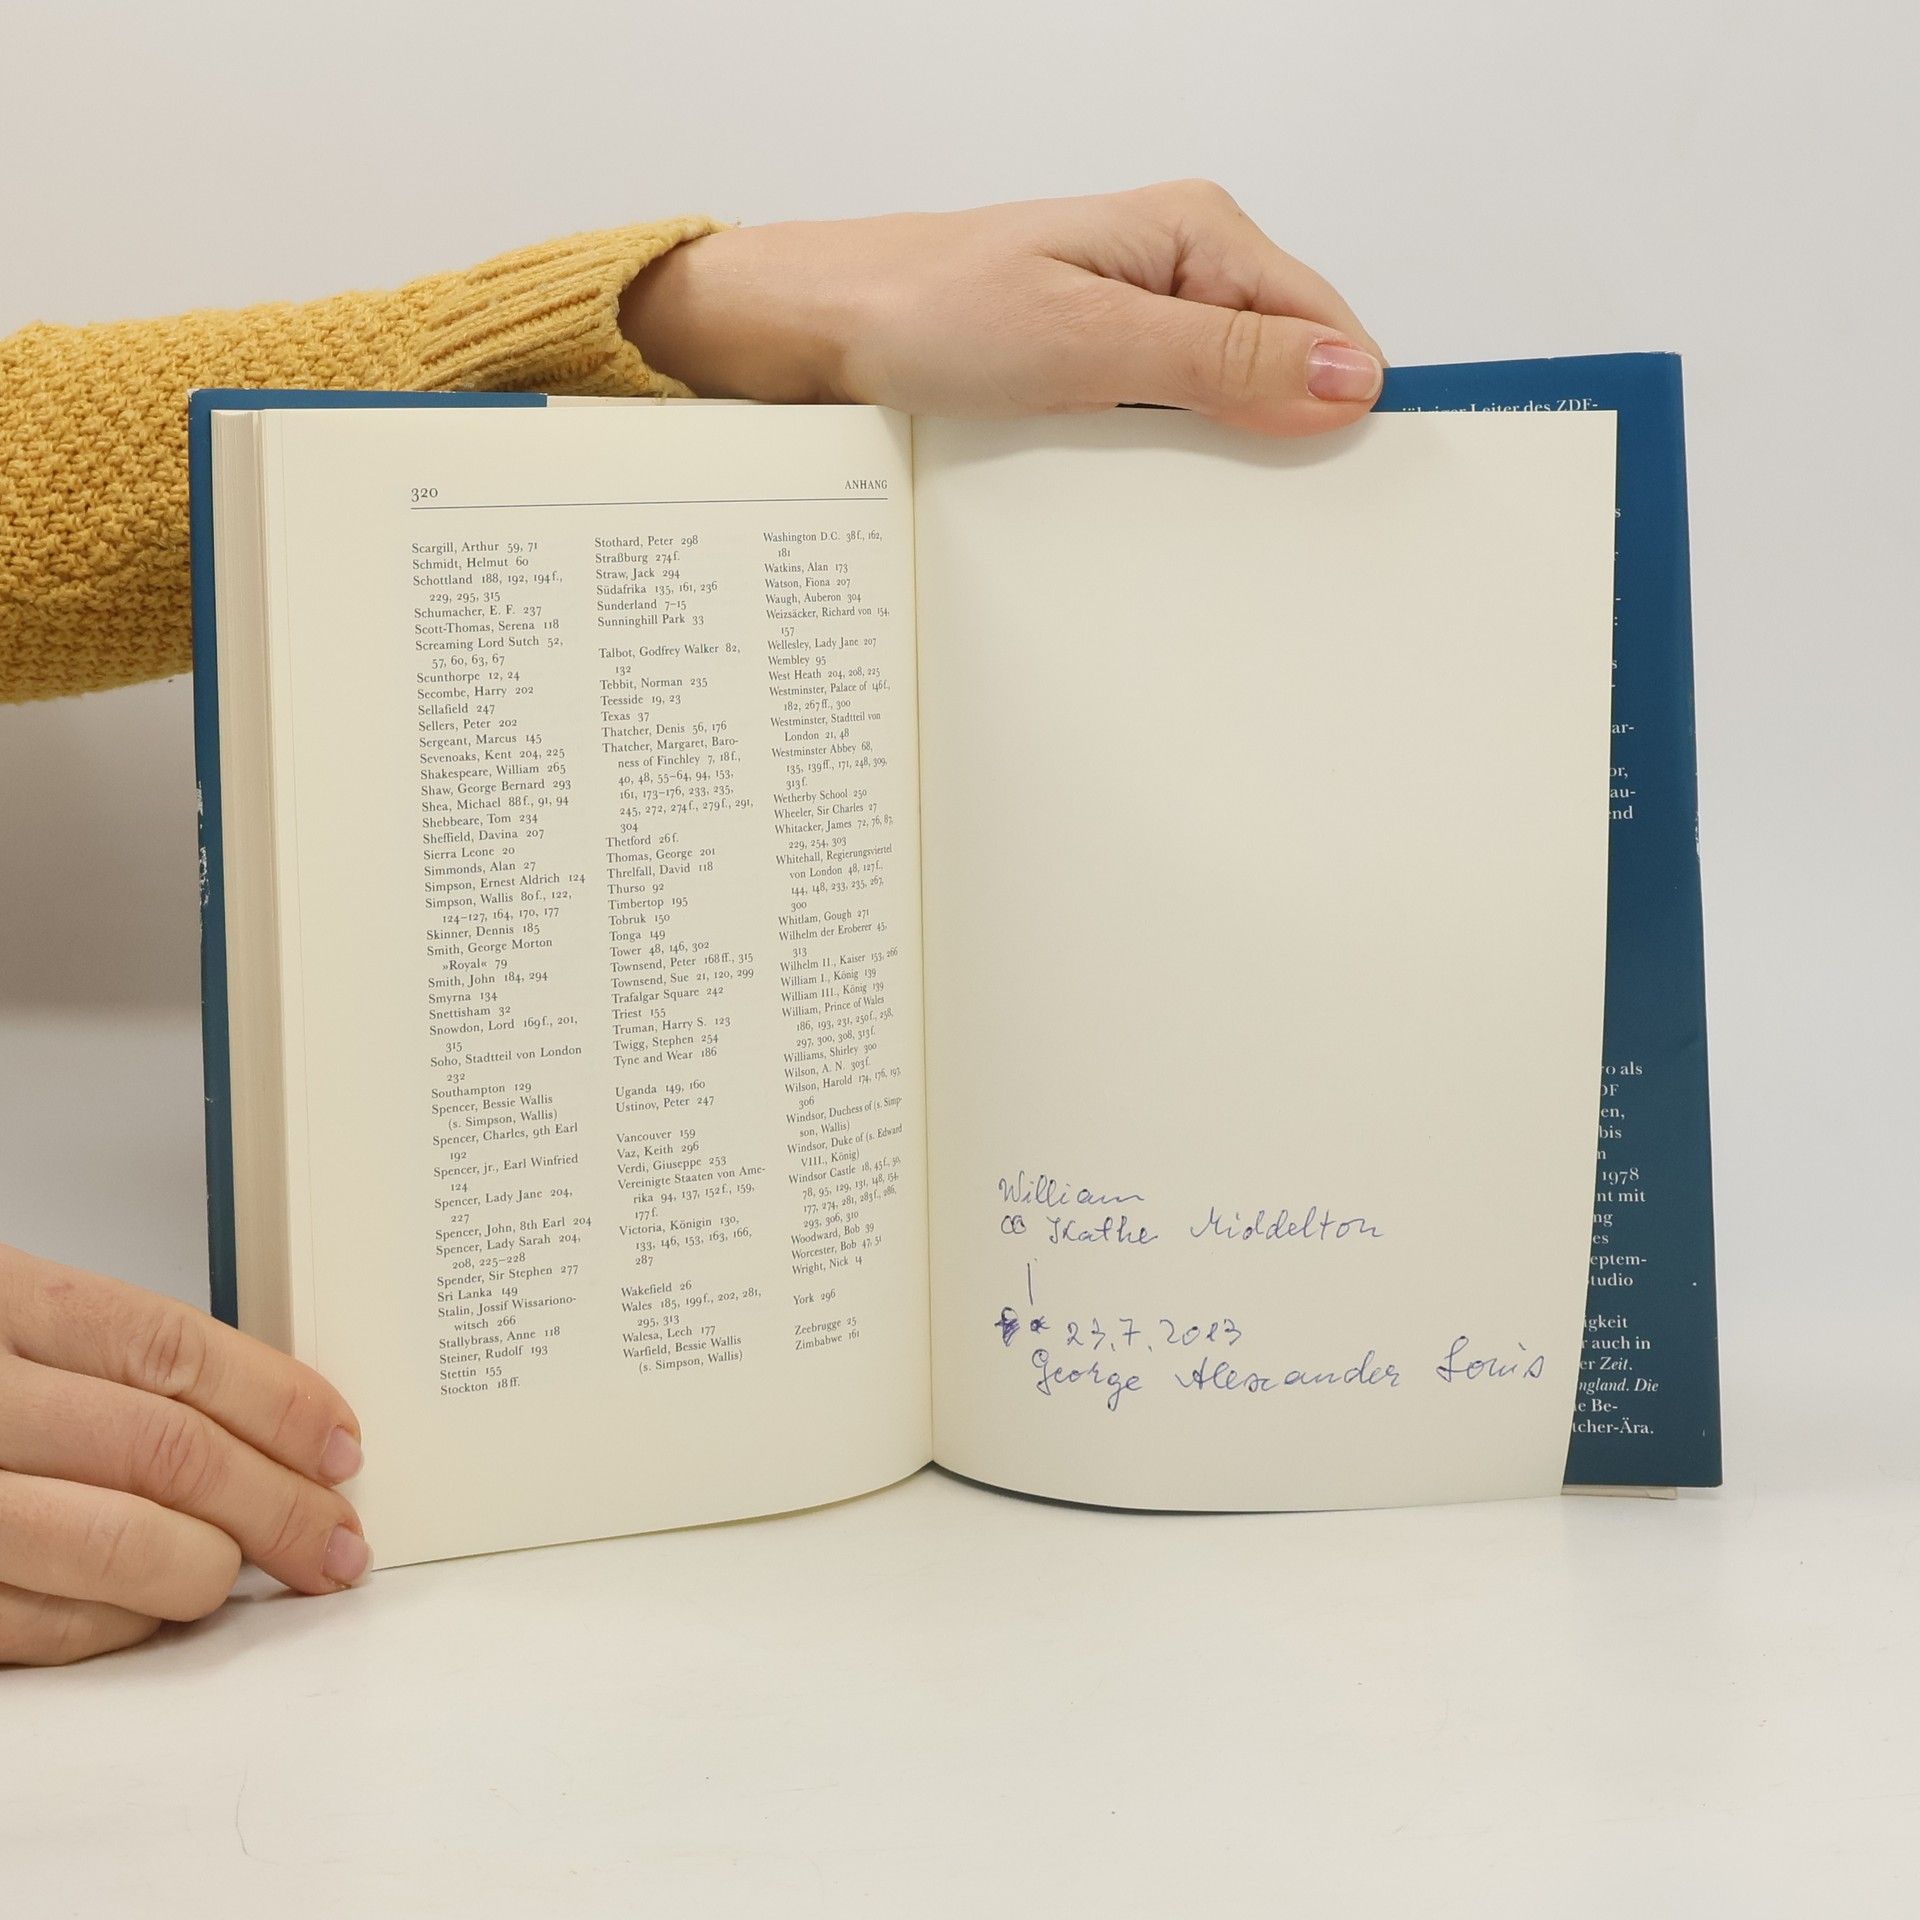 320
ANHANG
Scargill, Arthur 59, 71
Schmidt, Helmut 60
Schottland 188, 192, 194f.,
229, 295, 315
Schumacher, E. F. 237
Scott-Thomas, Serena 118
Screaming Lord Sutch 52,
57, 60, 63, 67
Scunthorpe 12, 24
Secombe, Harry 202
Sellafield 247
Sellers, Peter 202
Sergeant, Marcus 145
Sevenoaks, Kent 204, 225
Shakespeare, William 265
Shaw, George Bernard 293
Shea, Michael 88f., 91, 94
Shebbeare, Tom 234
Sheffield, Davina 207
Sierra Leone 20
Simmonds, Alan 27
Simpson, Ernest Aldrich 124
Simpson, Wallis 80f., 122,
124–127, 164, 170, 177
Skinner, Dennis 185
Smith, George Morton
»Royal« 79
Smith, John 184, 294
Smyrna 134
Snettisham 32
Snowdon, Lord 169f., 201,
315
Soho, Stadtteil von London
232
Southampton 129
Spencer, Bessie Wallis
(s. Simpson, Wallis)
Spencer, Charles, 9th Earl
192
Spencer, jr., Earl Winfried
124
Spencer, Lady Jane 204,
227
Spencer, John, 8th Earl 204
Spencer, Lady Sarah 204,
208, 225–228
Spender, Sir Stephen 277
Sri Lanka 149
Stalin, Jossif Wissariono-
witsch 266
Stallybrass, Anne 118
Steiner, Rudolf 193
Stettin 155
Stockton 18ff.
Stothard, Peter 298
Straßburg 274f.
Straw, Jack 294
Südafrika 135, 161, 236
Sunderland 7–15
Sunninghill Park 33
Talbot, Godfrey Walker 82,
132
Tebbit, Norman 235
Teesside 19, 23
Texas 37
Thatcher, Denis 56, 176
Thatcher, Margaret, Baro-
ness of Finchley 7, 18f.,
40, 48, 55–64, 94, 153,
161, 173–176, 233, 235,
245, 272, 274f., 279f., 291,
304
Thetford 26f.
Thomas, George 201
Threlfall, David 118
Thurso 92
Timbertop 195
Tobruk 150
Tonga 149
Tower 48, 146, 302
Townsend, Peter 168ff., 315
Townsend, Sue 21, 120, 299
Trafalgar Square 242
Triest 155
Truman, Harry S. 123
Twigg, Stephen 254
Tyne and Wear 186
Uganda 149, 160
Ustinov, Peter 247
Vancouver 159
Vaz, Keith 296
Verdi, Giuseppe 253
Vereinigte Staaten von Ame-
rika 94, 137, 152f., 159,
177f.
Victoria, Königin 130,
133, 146, 153, 163, 166,
287
Wakefield 26
Wales 185, 199f., 202, 281,
295, 313
Walesa, Lech 177
Warfield, Bessie Wallis
(s. Simpson, Wallis)
Washington D.C. 38f., 162,
181
Watkins, Alan 173
Watson, Fiona 207
Waugh, Auberon 304
Weizsäcker, Richard von 154,
157
Wellesley, Lady Jane 207
Wembley 95
West Heath 204, 208, 225
Westminster, Palace of 146f.,
182, 267ff., 300
Westminster, Stadtteil von
London 21, 48
Westminster Abbey 68,
135, 139ff., 171, 248, 309,
313f.
Wetherby School 250
Wheeler, Sir Charles 27
Whitacker, James 72, 76, 87,
229, 254, 303
Whitehall, Regierungsviertel
von London 48, 127f.,
144, 148, 233, 235, 267,
300
Whitlam, Gough 271
Wilhelm der Eroberer 45,
313
Wilhelm II., Kaiser 153, 266
William I., König 139
William III., König 139
William, Prince of Wales
186, 193, 231, 250f., 258,
297, 300, 308, 313f.
Williams, Shirley 300
Wilson, A. N. 303f.
Wilson, Harold 174, 176, 197,
306
Windsor, Duchess of (s. Simp-
son, Wallis)
Windsor, Duke of (s. Edward
VIII., König)
Windsor Castle 18, 45f., 50,
78, 95, 129, 131, 148, 154,
177, 274, 281, 283f., 286,
293, 306, 310
Woodward, Bob 39
Worcester, Bob 47, 51
Wright, Nick 14
York 296
Zeebrugge 25
Zimbabwe 161
William
∞ Kathe Middelton
* 23.7.2013
George Alexander Louis
jähriger Leiter des ZDF-
ar-
or,
au-
end
ro als
DF
en,
bis
1978
nt mit
ng
es
eptem-
tudio
igkeit
r auch in
er Zeit.
ngland. Die
e Be-
tcher-Ära.